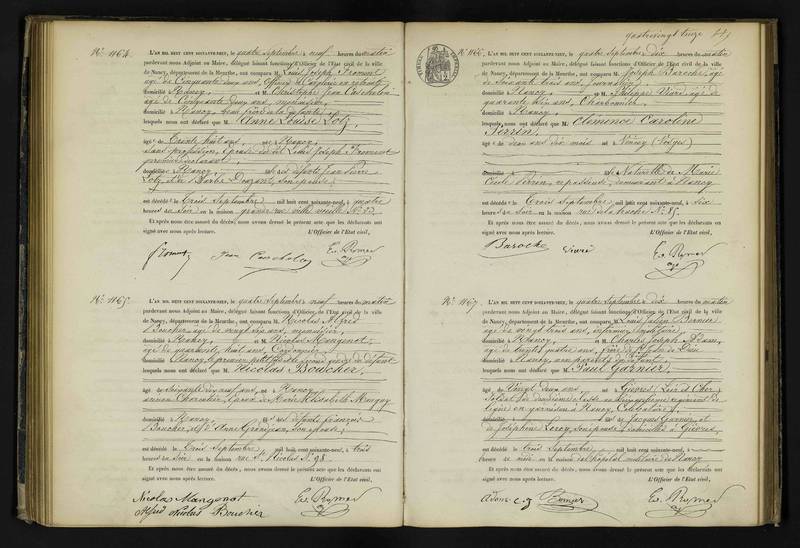 quatrevingt treize
N° 1164.
L'AN MIL HUIT CENT SOIXANTE-NEUF, le quatre Septembre neuf heures du matin
pardevant nous Adjoint au Maire, délégué faisant fonctions d'Officier de l'Etat civil de la ville
de Nancy, département de la Meurthe, ont comparu M. Louis Joseph Froment
âgé de Cinquante deux ans, Officier de Cavalerie en retraite
domicilié à Nancy, et M. Christophe Jean
âgé de Cinquante deux ans, menuisier,
domicilié à Nancy,
lesquels nous ont déclaré que M. Anne Louise Lotz,
âgée de Trente huit ans, née à Nancy,
sans profession, épouse du dit Louis Joseph Froment
premier déclarant,
domiciliée à Nancy fille de défunt Jean Pierre
Lotz et de Barbe son épouse,
est décédée le trois Septembre mil huit cent soixante-neuf, à quatre
heures du soir en la maison grande rue ville vieille N°
Et après nous être assuré du décès, nous avons dressé le présent acte que les déclarants ont
signé avec nous après lecture. L'Officier de l'Etat civil,
Froment Jean
N° 1165.
L'AN MIL HUIT CENT SOIXANTE-NEUF, le quatre Septembre neuf heures du matin
pardevant nous Adjoint au Maire, délégué faisant fonctions d'Officier de l'Etat civil de la ville
de Nancy, département de la Meurthe, ont comparu M. Nicolas Alfred
Boucher, âgé de vingt six ans, menuisier,
domicilié à Nancy, et M. Nicolas Mangenot,
âgé de quarante huit ans, Cordonnier,
domicilié à Nancy,
lesquels nous ont déclaré que M. Nicolas Boucher,
âgé de soixante dix neuf ans, né à Nancy,
ancien Charcutier, époux de Marie Elisabeth
domicilié à Nancy fils des défunts François
Boucher, et d'Anne Grandjean, son épouse,
est décédé le trois Septembre mil huit cent soixante-neuf, à trois
heures du soir en la maison rue St Nicolas N° 98.
Et après nous être assuré du décès, nous avons dressé le présent acte que les déclarants ont
signé avec nous après lecture. L'Officier de l'Etat civil,
Nicolas Mangenot
Alfred Nicolas Boucher
N° 1166.
L'AN MIL HUIT CENT SOIXANTE-NEUF, le quatre Septembre dix heures du matin
pardevant nous Adjoint au Maire, délégué faisant fonctions d'Officier de l'Etat civil de la ville
de Nancy, département de la Meurthe, ont comparu M. Joseph Baroche, âgé
de soixante trois ans, journalier,
domicilié à Nancy, et M. Philippe Viard âgé de
quarante six ans, Charbonnier,
domicilié à Nancy,
lesquels nous ont déclaré que M. Clémence Caroline
Perrin,
âgée de deux ans dix mois née à (Vosges)
domiciliée à fille Naturelle de Marie
Cécile Perrin, repasseuse, demeurant à Nancy
est décédée le trois Septembre mil huit cent soixante-neuf, à six
heures du soir en la maison rue N° 85.
Et après nous être assuré du décès, nous avons dressé le présent acte que les déclarants ont
signé avec nous après lecture. L'Officier de l'Etat civil,
Baroche Viard
N° 1167.
L'AN MIL HUIT CENT SOIXANTE-NEUF, le quatre Septembre dix heures du matin
pardevant nous Adjoint au Maire, délégué faisant fonctions d'Officier de l'Etat civil de la ville
de Nancy, département de la Meurthe, ont comparu M. Louis Julien Bernier
âgé de vingt trois ans, infirmier militaire,
domicilié à Nancy, et M. Charles Joseph Adam,
âgé de trente quatre ans,
domicilié à Nancy,
lesquels nous ont déclaré que M. Paul Garnier,
âgé de Vingt deux ans, né à Gièvres (Loir et Cher)
Soldat de deuxième classe au régiment de
ligne en garnison à Nancy, Célibataire,
domicilié fils de Jacques Garnier, et
de Joséphine Leroy, son épouse, domiciliés à Gièvres,
est décédé le trois Septembre mil huit cent soixante-neuf,
heures en la maison hôpital militaire de Nancy
Et après nous être assuré du décès, nous avons dressé le présent acte que les déclarants ont
signé avec nous après lecture. L'Officier de l'Etat civil,
Adam c. j